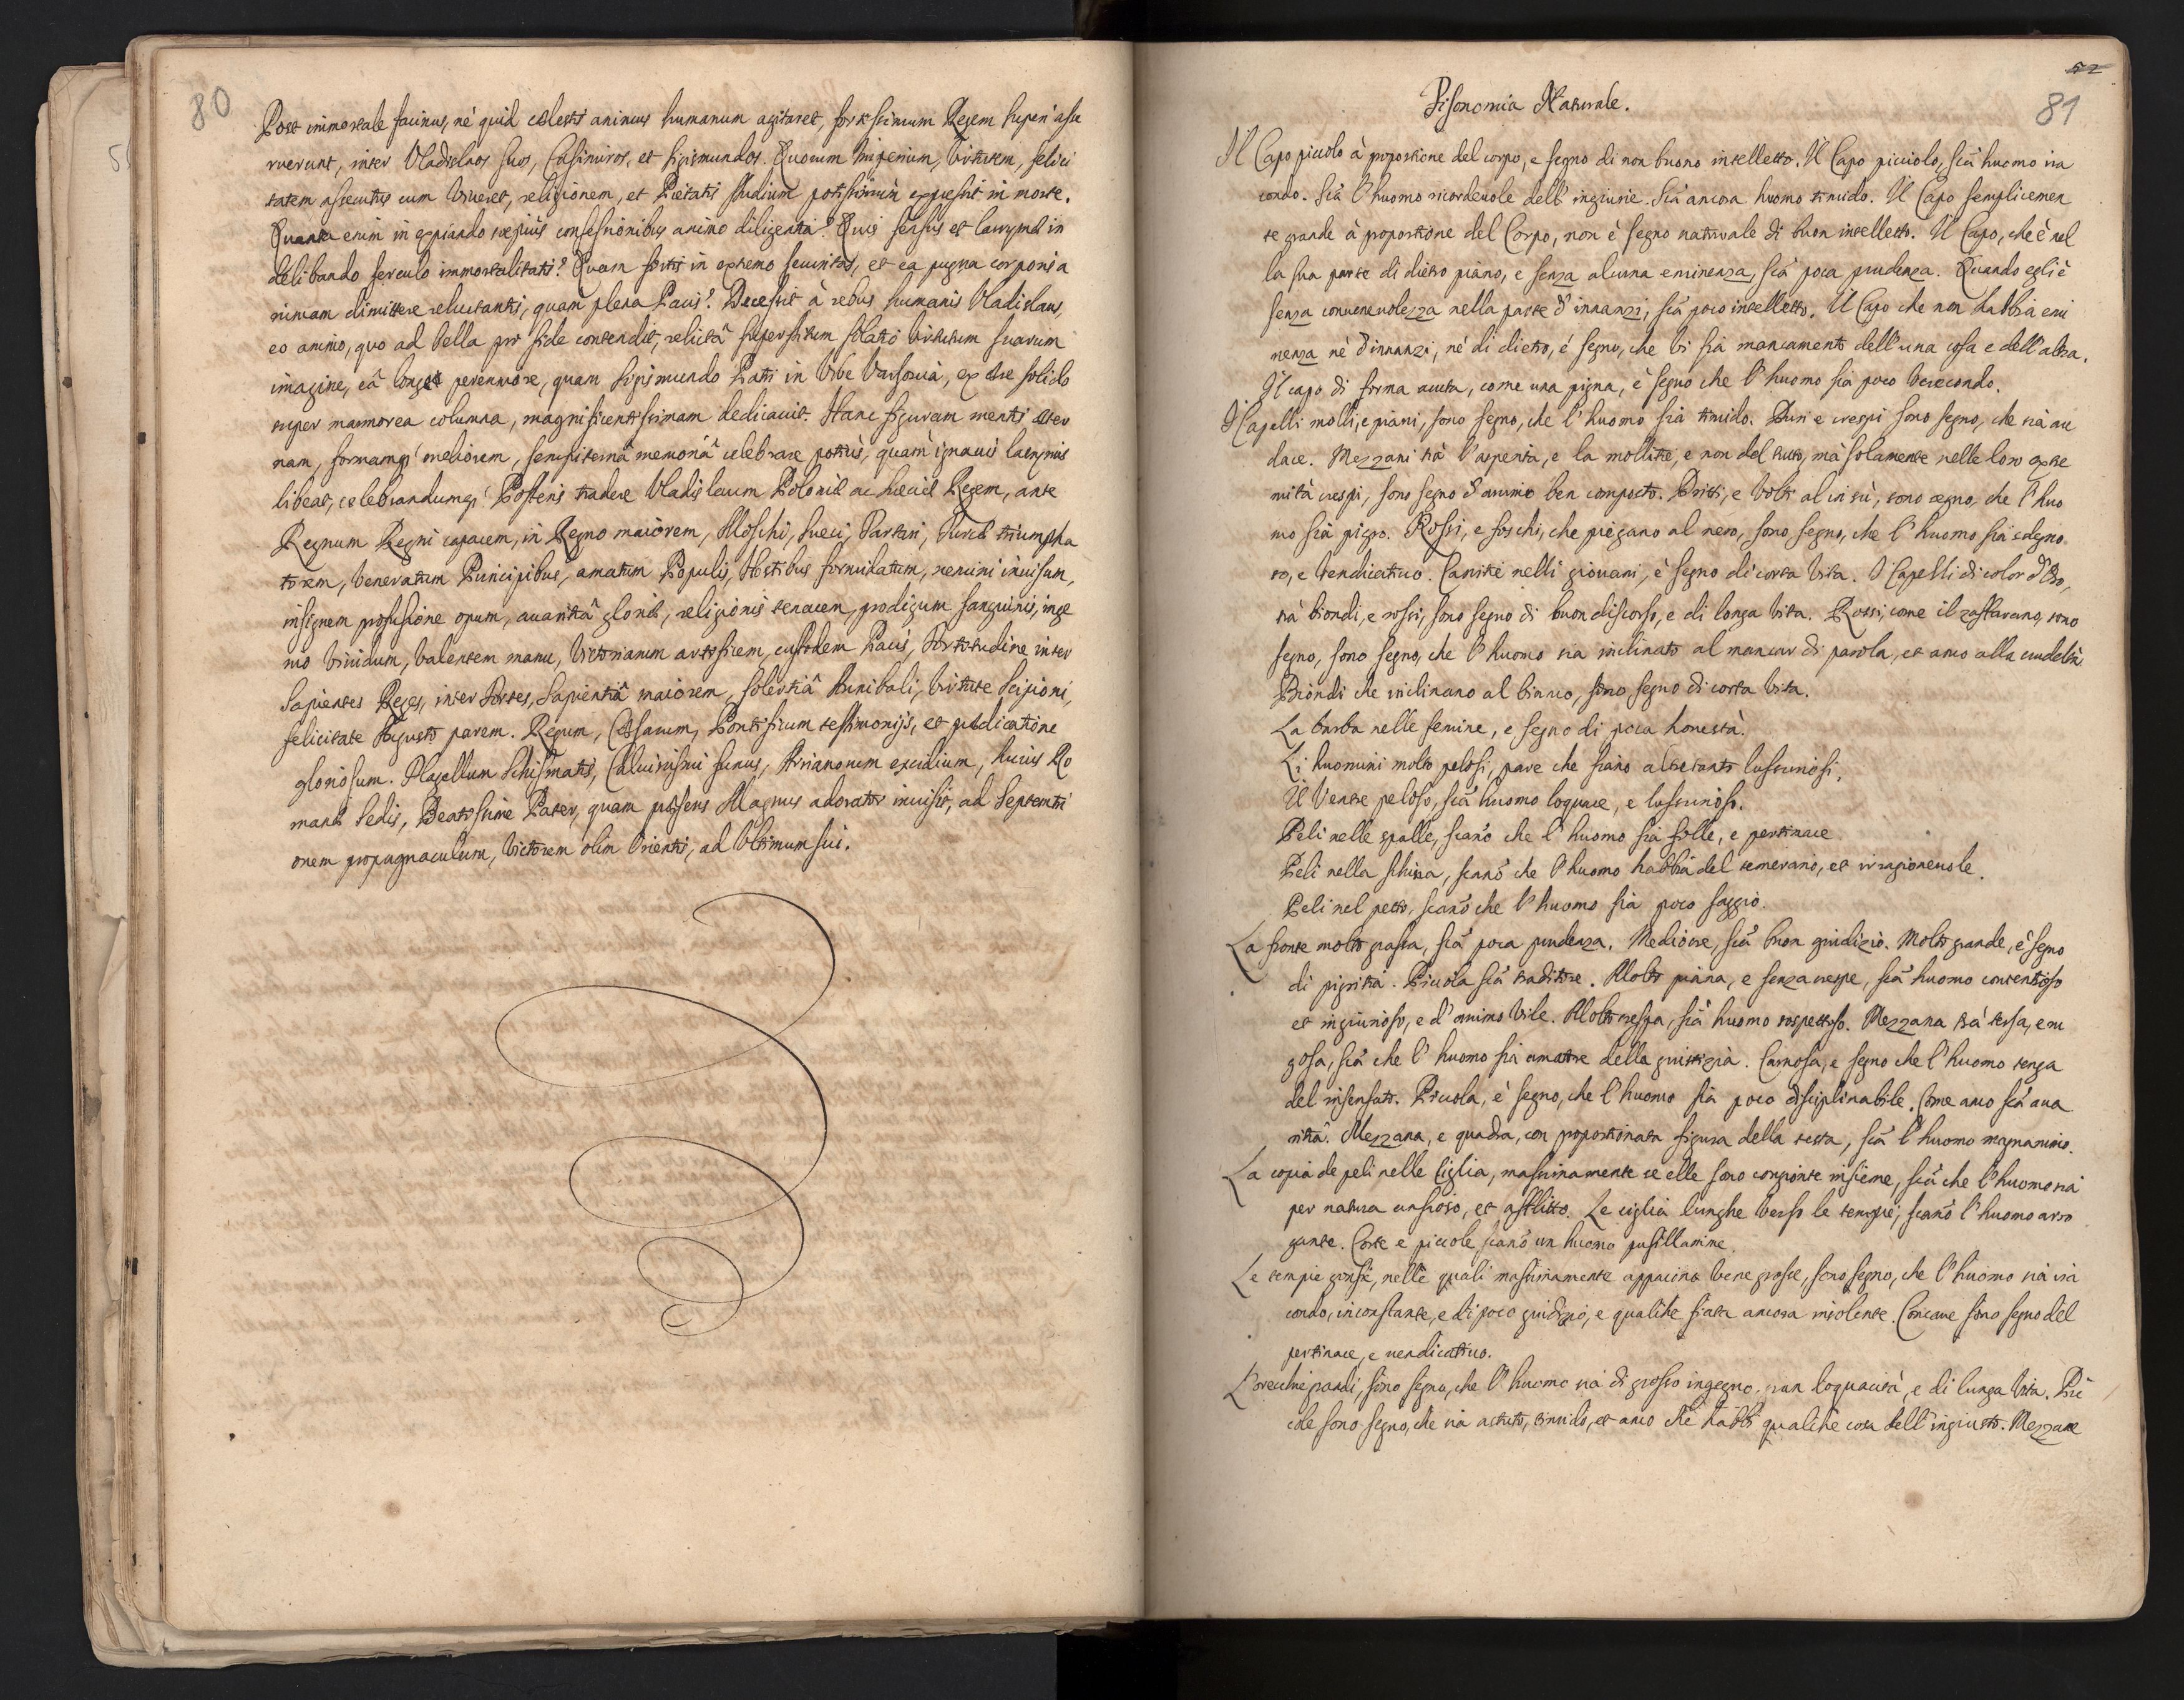 80
Post immortale facinus, nè quid cælestis animus humanum agitaret, fortissimum Regem superi asse
ruerunt, inter Vladislaos suos, Casimiros, et Sigismundos. Quorum Imperium, virtutem, felici
tatem assecutus cum viueret, religionem, et Pietatis studium potissimùm expressit in morte.
Quanta enim in expiando sæpius confessionibus animo diligentia? Quis sensus et lacrymæ in
delibando ferculo immortalitatis? Quam fortis in extremo securitas, et ea pugna corporis a
nimam dimittere reluctantis, quam plena Pacis? Decessit à rebus humanis Vladislaus,
eo animo, quo ad bella pro fide contendit, relictâ superstitum solatio virtutum suarum
imagine, eâ longè perenniore, quam Sigismundo Patri in Vrbe Varsouia, ex ære solido
super marmorea columna, magnificentissimam dedicauit. Hanc figuram mentis æter
nam, formamq; meliorem, sempiternâ memoriâ celebrare potiùs, quàm ignauis lacrymis
libeat, celebrandumq; Posteris tradere Vladislaum Poloniæ ac Sueciæ Regem, ante
Regnum Regni capacem, in Regno maiorem, Moschi, Sueci, Tartari, Turcæ triumpha
torem, Veneratum Principibus, amatum Populis, Hostibus formidatum, nemini inuisum,
insignem profusione opum, auaritiâ gloriæ, religionis tenacem, prodigum sanguinis, inge
nio viuidum, valentem manu, Victoriarum artificem, custodem Pacis, Fortitudine inter
Sapientes Reges, inter Fortes, Sapientiâ maiorem, solertiâ Annibali, virtute Scipioni,
felicitate Augusto parem. Regum, Cæsarum, Pontificum testimonijs, et prædicatione
gloriosum. Flagellum Schismatis, Caluinismi funus, Arianorum excidium, huius Ro
manæ Sedis, Beatissime Pater, quam præsens Magnus adorator inuisit, ad Septentri
onem propugnaculum, Victorem olim Orientis, ad Vltimum sui.
52
81
Fisonomia Naturale.
Il Capo piccolo à proportione del corpo, e segno di non buono intelletto. Il Capo picciolo, fià huomo ira
condo. Fià l'huomo ricordeuole dell' ingiurie. Fià ancora huomo timido. Il Capo semplicemen
te grande à proportione del Corpo, non è segno naturale di buon intelletto. Il Capo, che è nel
la sua parte di dietro piano, e senza alcuna eminenza, fià poca prudenza. Quando egli è
senza conueneuolezza nella parte d'innanzi, fià poco intelletto. Il Capo che non habbia emi
nenza nè d'innanzi, nè di dietro, é segno, che vi sia mancamento dell'una cosa e dell'altra.
Il capo di forma acuta, come una pigna, è segno che l'huomo sia poco verecondo.
I Capelli molli, e piani, sono segno, che l'huomo sia timido. Duri e crespi sono segno, che sia au
dace. Mezzani trà l'asprezza, e la mollitie, e non del tutto, mà solamente nelle loro estre
mità crespi, sono segno d'animo ben composto. Dritti, e volti al in sù, sono segno, che l'huo
mo sia pigro. Rossi, e foschi, che piegano al nero, sono segno, che l'huomo sia sdegno
so, e vendicatiuo. Canitie nelli giouani, è segno di corta vita. I Capelli di color d'Oro,
trà biondi, e rossi, sono segno di buon discorso, e di longa vita. Rossi, come il zaffarano, sono
segno, sono segno, che l'huomo sia inclinato al mancar di parola, et anco alla crudeltà.
Biondi che inclinano al bianco, sono segno di corta vita.
La barba nelle femine, e segno di poca honestà.
Li huomini molto pelosi, pare che siano altretanto lussuriosi.
Il Ventre peloso, fià huomo loquace, e lussurioso.
Peli nelle spalle, fiano che l'huomo sia folle, e pertinace
Peli nella schina, fiano che l'huomo habbia del temerario, et irragioneuole.
Peli nel petto, fiano che l'huomo sia poco saggio.
La fronte molto grassa, fià poca prudenza. Mediocre, fià buon giudizio. Molto grande, è segno
di pigritia. Piccola fià traditore. Molto piana, e senza crespe, fià huomo contentioso
et ingiurioso, e d'animo vile. Molto crespa, fià huomo sospettoso. Mezzana trà tersa, e ru
gosa, fià che l'huomo sia amatore della giustizia. Carnosa, e segno che l'huomo tenga
del insensato. Piccola, è segno, che l'huomo sia poco disciplinabile. Come anco fià aua
ritia. Mezzana, e quadra, con proportionata figura della testa, fià l'huomo magnanimo.
La copia de peli nelle Ciglia, massimamente se elle sono congionte insieme, fià che l'huomo sia
per natura ansioso, et afflitto. Le ciglia lunghe verso le tempie, fiano l'huomo arro
gante. Corte e piccole fiano un huomo pusillanime.
Le tempie gonfie, nelle quali massimamente appaiono vene grosse, sono segno, che l'huomo sia ira
condo, inconstante, e di poco giudizio, e qualche fiata ancora insolente. Concaue sono segno del
pertinace, e uendicatiuo.
L'orecchie grandi, sono segno, che l'huomo sia di grosso ingegno, gran loquacità, e di lunga vita. Pic
cole sono segno, che sia astuto, timido, et anco che habbi qualche cosa dell'ingiusto. Mezzane